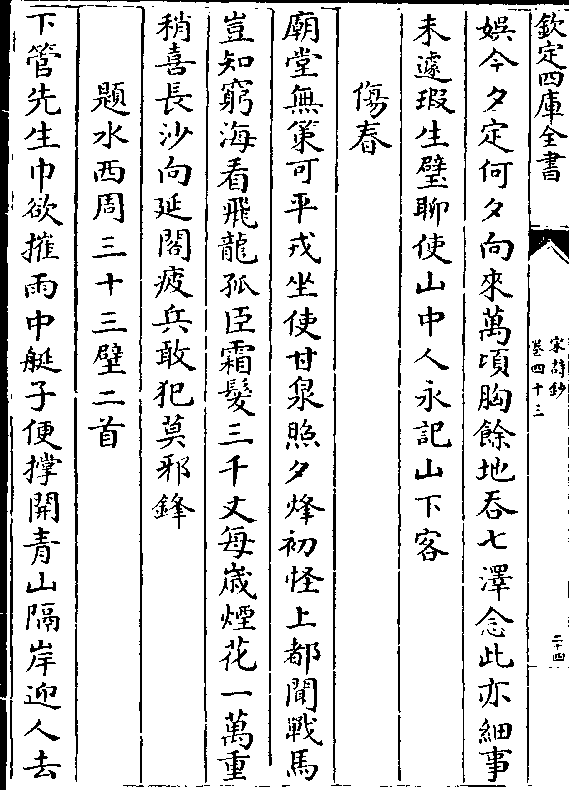 欽定四庫全書
宋詩鈔
卷四十三
二十四
娯今夕定何夕向來萬頃胸餘地吞七澤念此亦細事
未遽瑕生璧聊使山中人永記山下客
傷春
廟堂無策可平戎坐使甘泉照夕烽初怪上都聞戰馬
豈知窮海看飛龍孤臣霜髮三千丈每歲煙花一萬重
稍喜長沙向延閣疲兵敢犯莫邪鋒
題水西周三十三壁二首
下管先生巾欲摧雨中艇子便撑開青山隔岸迎人去